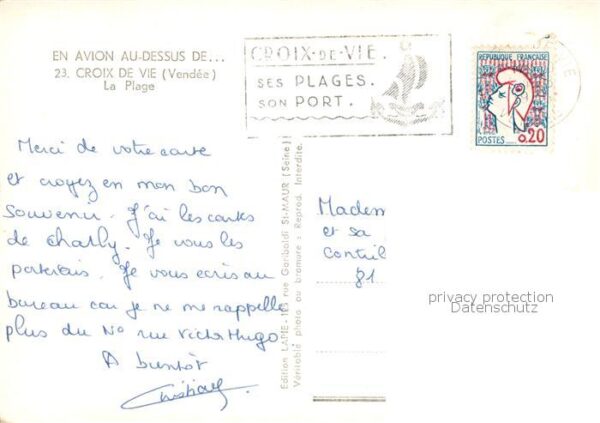 EN AVION AU-DESSUS DE...
23. CROIX DE VIE (Vendée)
La Plage
CROIX-DE-VIE.
SES PLAGES.
SON PORT.
REPUBLIQUE FRANÇAISE
0,20
POSTES
Merci de votre carte
et croyez en mon bon
souvenir. J'ai les cartes
de Charly. Je vous les
porterais. Je vous écris au
bureau car je ne me rappelle
plus du No rue Victor Hugo
A bientôt
Edition LAPIE - 123 rue Garibaldi St-MAUR (Seine)
Véritable photo au bromure : Reprod. Interdite.
Madem
et sa
81
privacy protection
Datenschutz